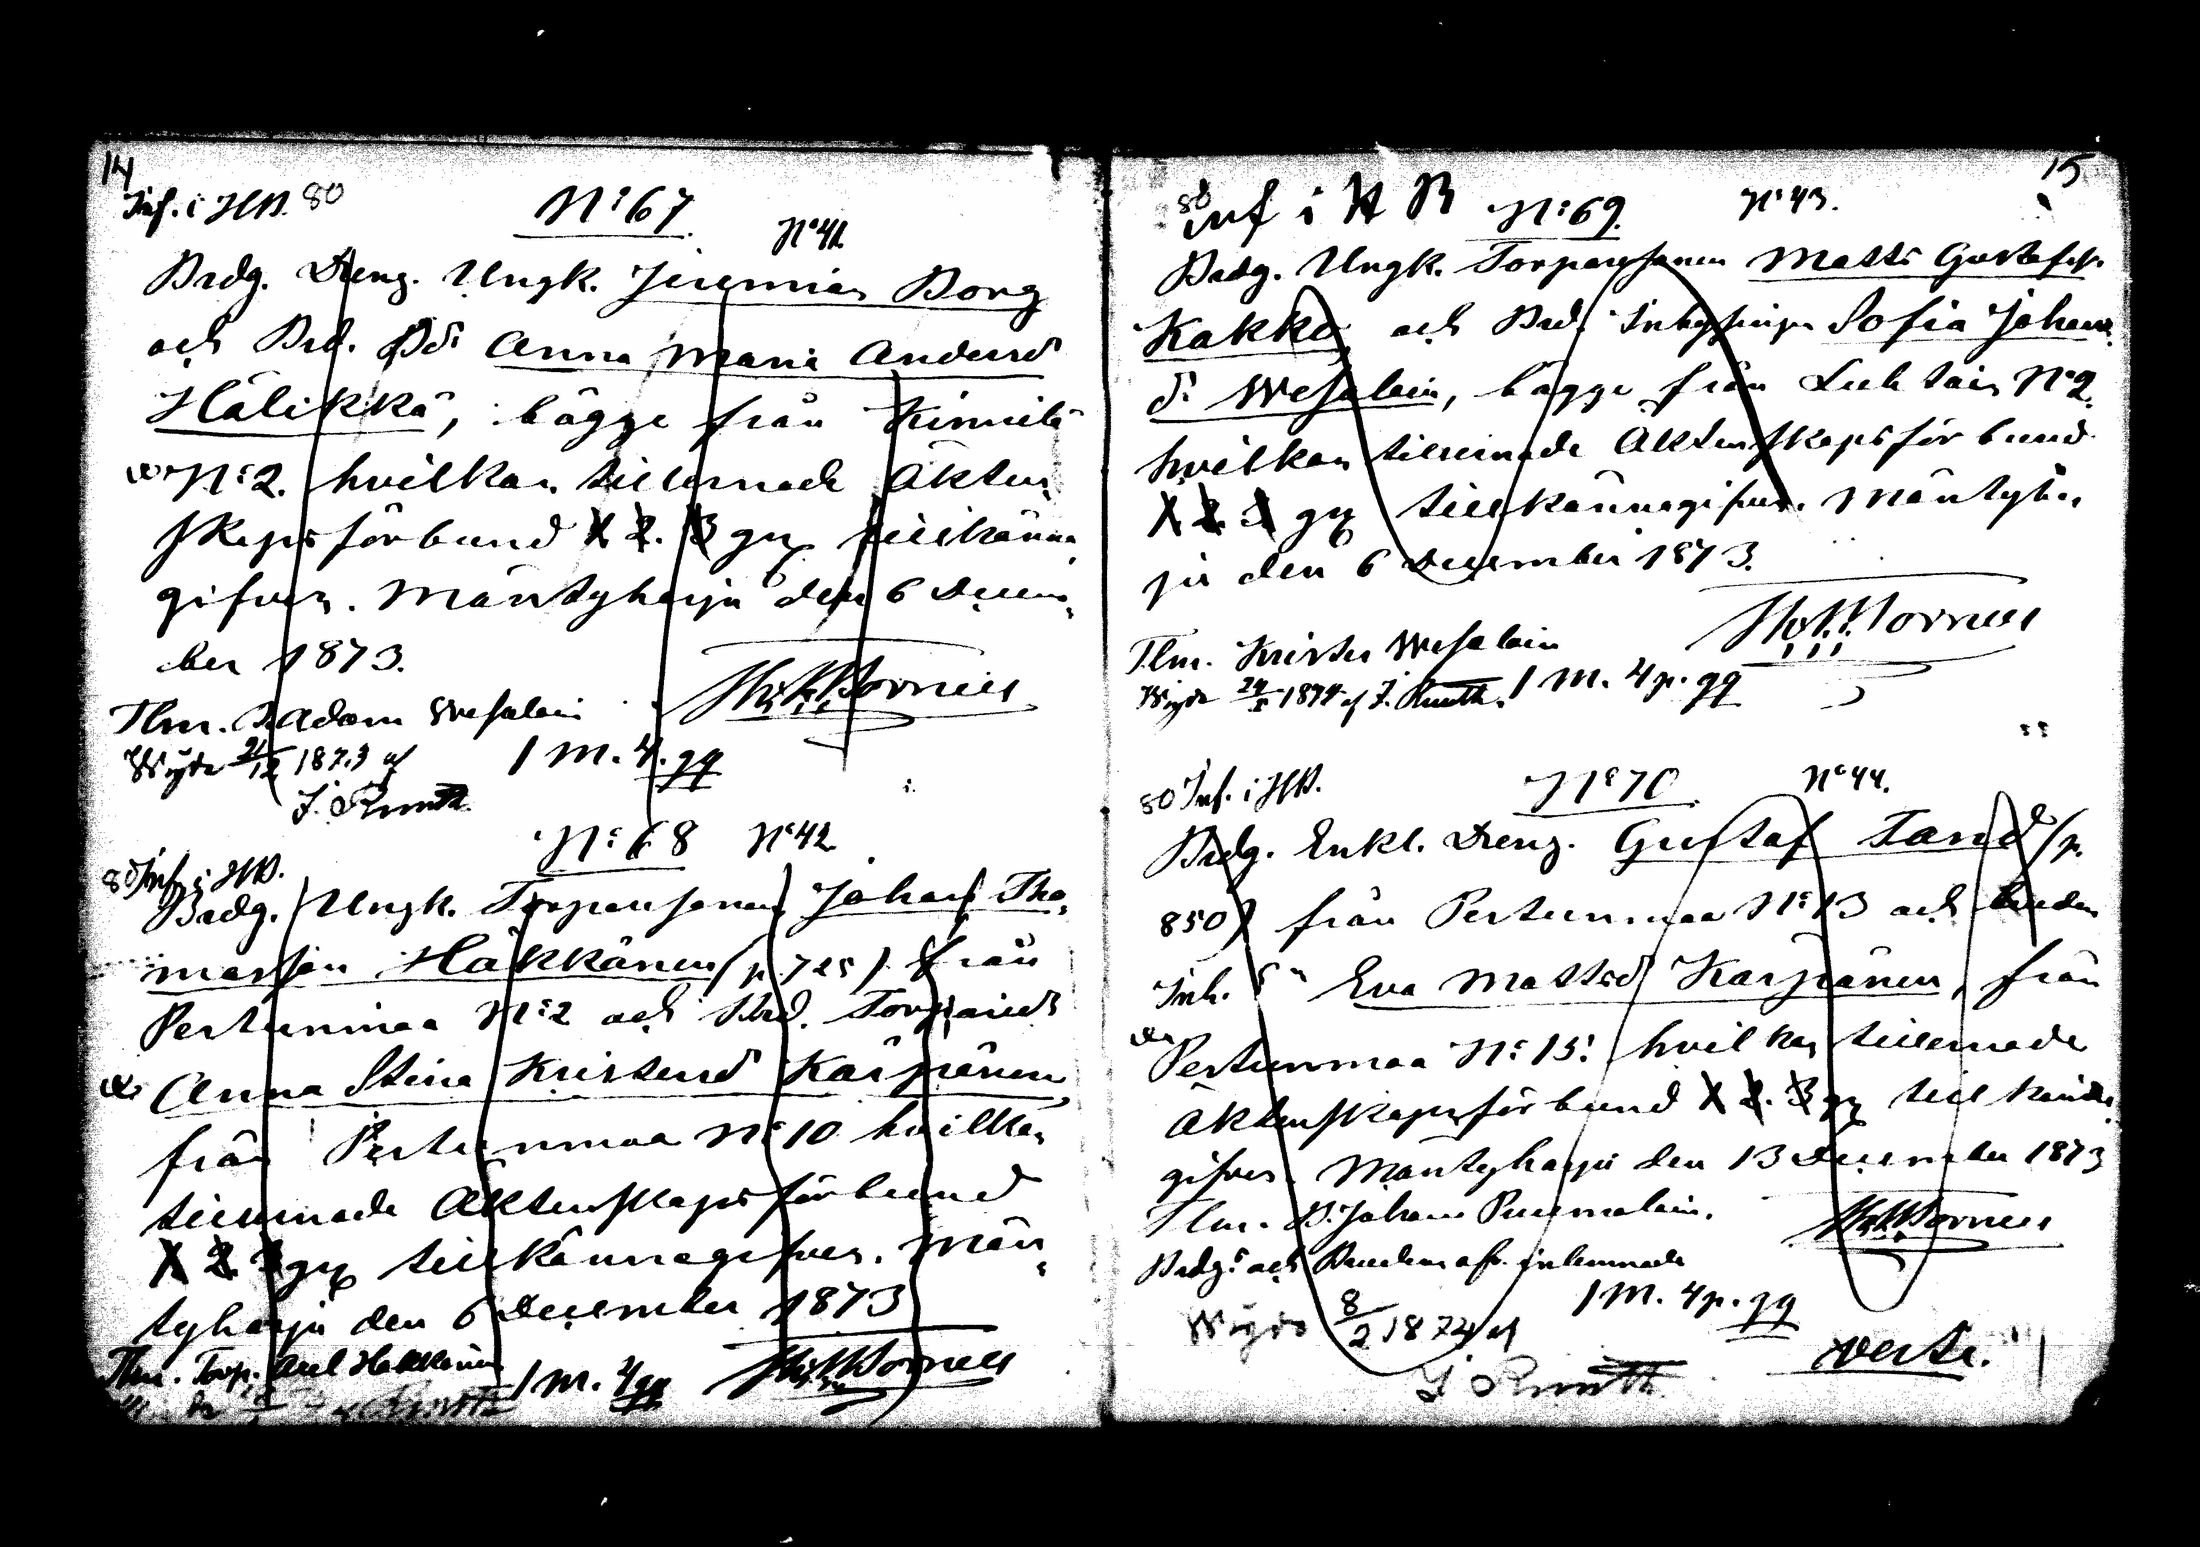 14
Inf. i HB. 80
N:o 67
N:o 41
Brdg. Dreng. Ungk. Jeremias Borg
och Brd. Pd: Anna Maria Andersd
Hälikkä, bägge från Kinnilä
N:o 2. hvilkas tillernade Äkten-
skapsförbund 1 2. 3 gg tillkänna-
gifves. Mäntyharju den 6 Decem-
ber 1873.
Tlm. Adam Wesalain
Wigde 21/12 1873 af 1 M. 4. gg
J. Rmth
N:o 68 N:o 42
80 Inf. i HB.
Brdg. Ungk. Torparesonen Johan Tho-
masson Häkkänen (p. 725) från
Pertunmaa N:o 2 och Brd. Torpared:
Anna Stina Kristersd Kärpänen
från Pertunmaa N:o 10 hvilkas
tillernade Äktenskapsförbund
1 2 3 gg tillkännagifves. Män-
tyharju den 6 December 1873
Tlm. Torp. Axel Hakkänen
1 M. 4 gg
15
80 Inf i H B N:o 69. N:o 43.
Brdg. Ungk. Torparesonen Matts Gustafss.
Kakko och Brd. Inhysesping Sofia Johans-
d: Wesalain, bägge från Luhtain N:o 2.
hvilkas tillernade Äktenskapsförbund
1 2 3 gg tillkännagifves. Mäntyhar-
ju den 6 December 1873.
Tlm. Krister Wesalain
Wigde 24/1 1874 af J. Rmth. 1 M. 4 p. gg
80 Inf. i HB. N:o 70 N:o 44.
Brdg. Enkl. Dreng. Gustaf Tand (p.
850) från Pertunmaa N:o 13 och bruden
Inh. Eva Mattsd Kärpänen, från
Pertunmaa N:o 15: hvilkas tillernade
Äktenskapsförbund 1 2. 3 gg tillkänna-
gifves. Mäntyharju den 13 December 1873
Tlm. B. Johan Puumalain.
Brdg: och Brudens afs. inlemnade
1 M. 4 p. gg
Wigde 8/2 1874 af
J Rmth
verte.